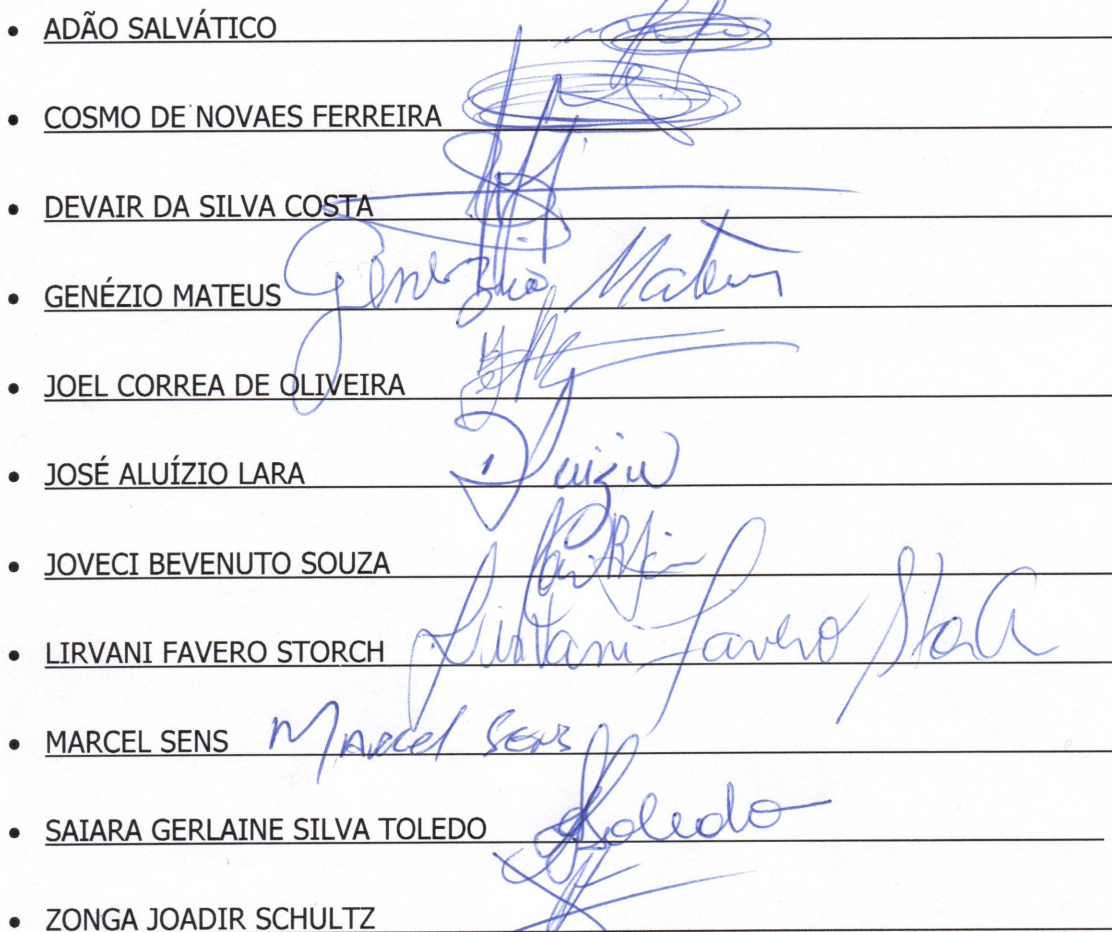 • ADÃO SALVÁTICO
• COSMO DE NOVAES FERREIRA
• DEVAIR DA SILVA COSTA
• GENÉZIO MATEUS Genezio Mateus
• JOEL CORREA DE OLIVEIRA
• JOSÉ ALUÍZIO LARA
• JOVECI BEVENUTO SOUZA
• LIRVANI FAVERO STORCH Lirvani Favero Storch
• MARCEL SENS Marcel Sens
• SAIARA GERLAINE SILVA TOLEDO Toledo
• ZONGA JOADIR SCHULTZ